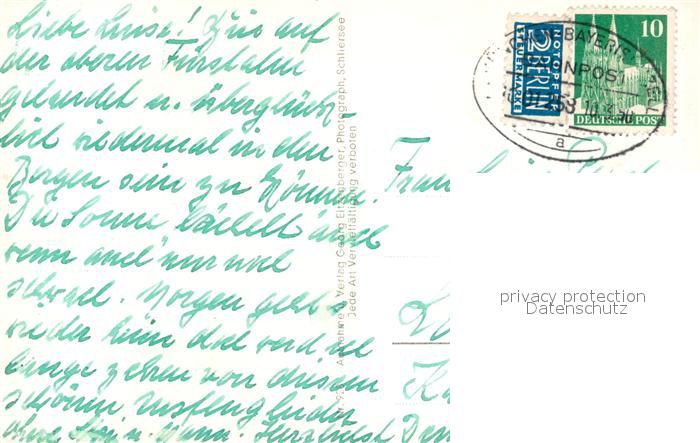 Liebe Luise! Bin auf
der oberen Firstalm
gelandet u. überglück-
lich wiedermal in den
Bergen sein zu können.
Die Sonne lächelt auch
wenn auch nur
schwach. Morgen geht's
wieder heim doch werd ich
lange zehren von diesem
schönen Ausflug leider
ohne u. Herzlichst
Aufnahme u. Verlag Georg Eitzenberger, Photograph, Schliersee
Jede Art Vervielfältigung verboten
NOTOPFER
2 BERLIN
STEUERMARKE
10
DEUTSCHE POST
BAHNPOST
a
Frau
privacy protection
Datenschutz